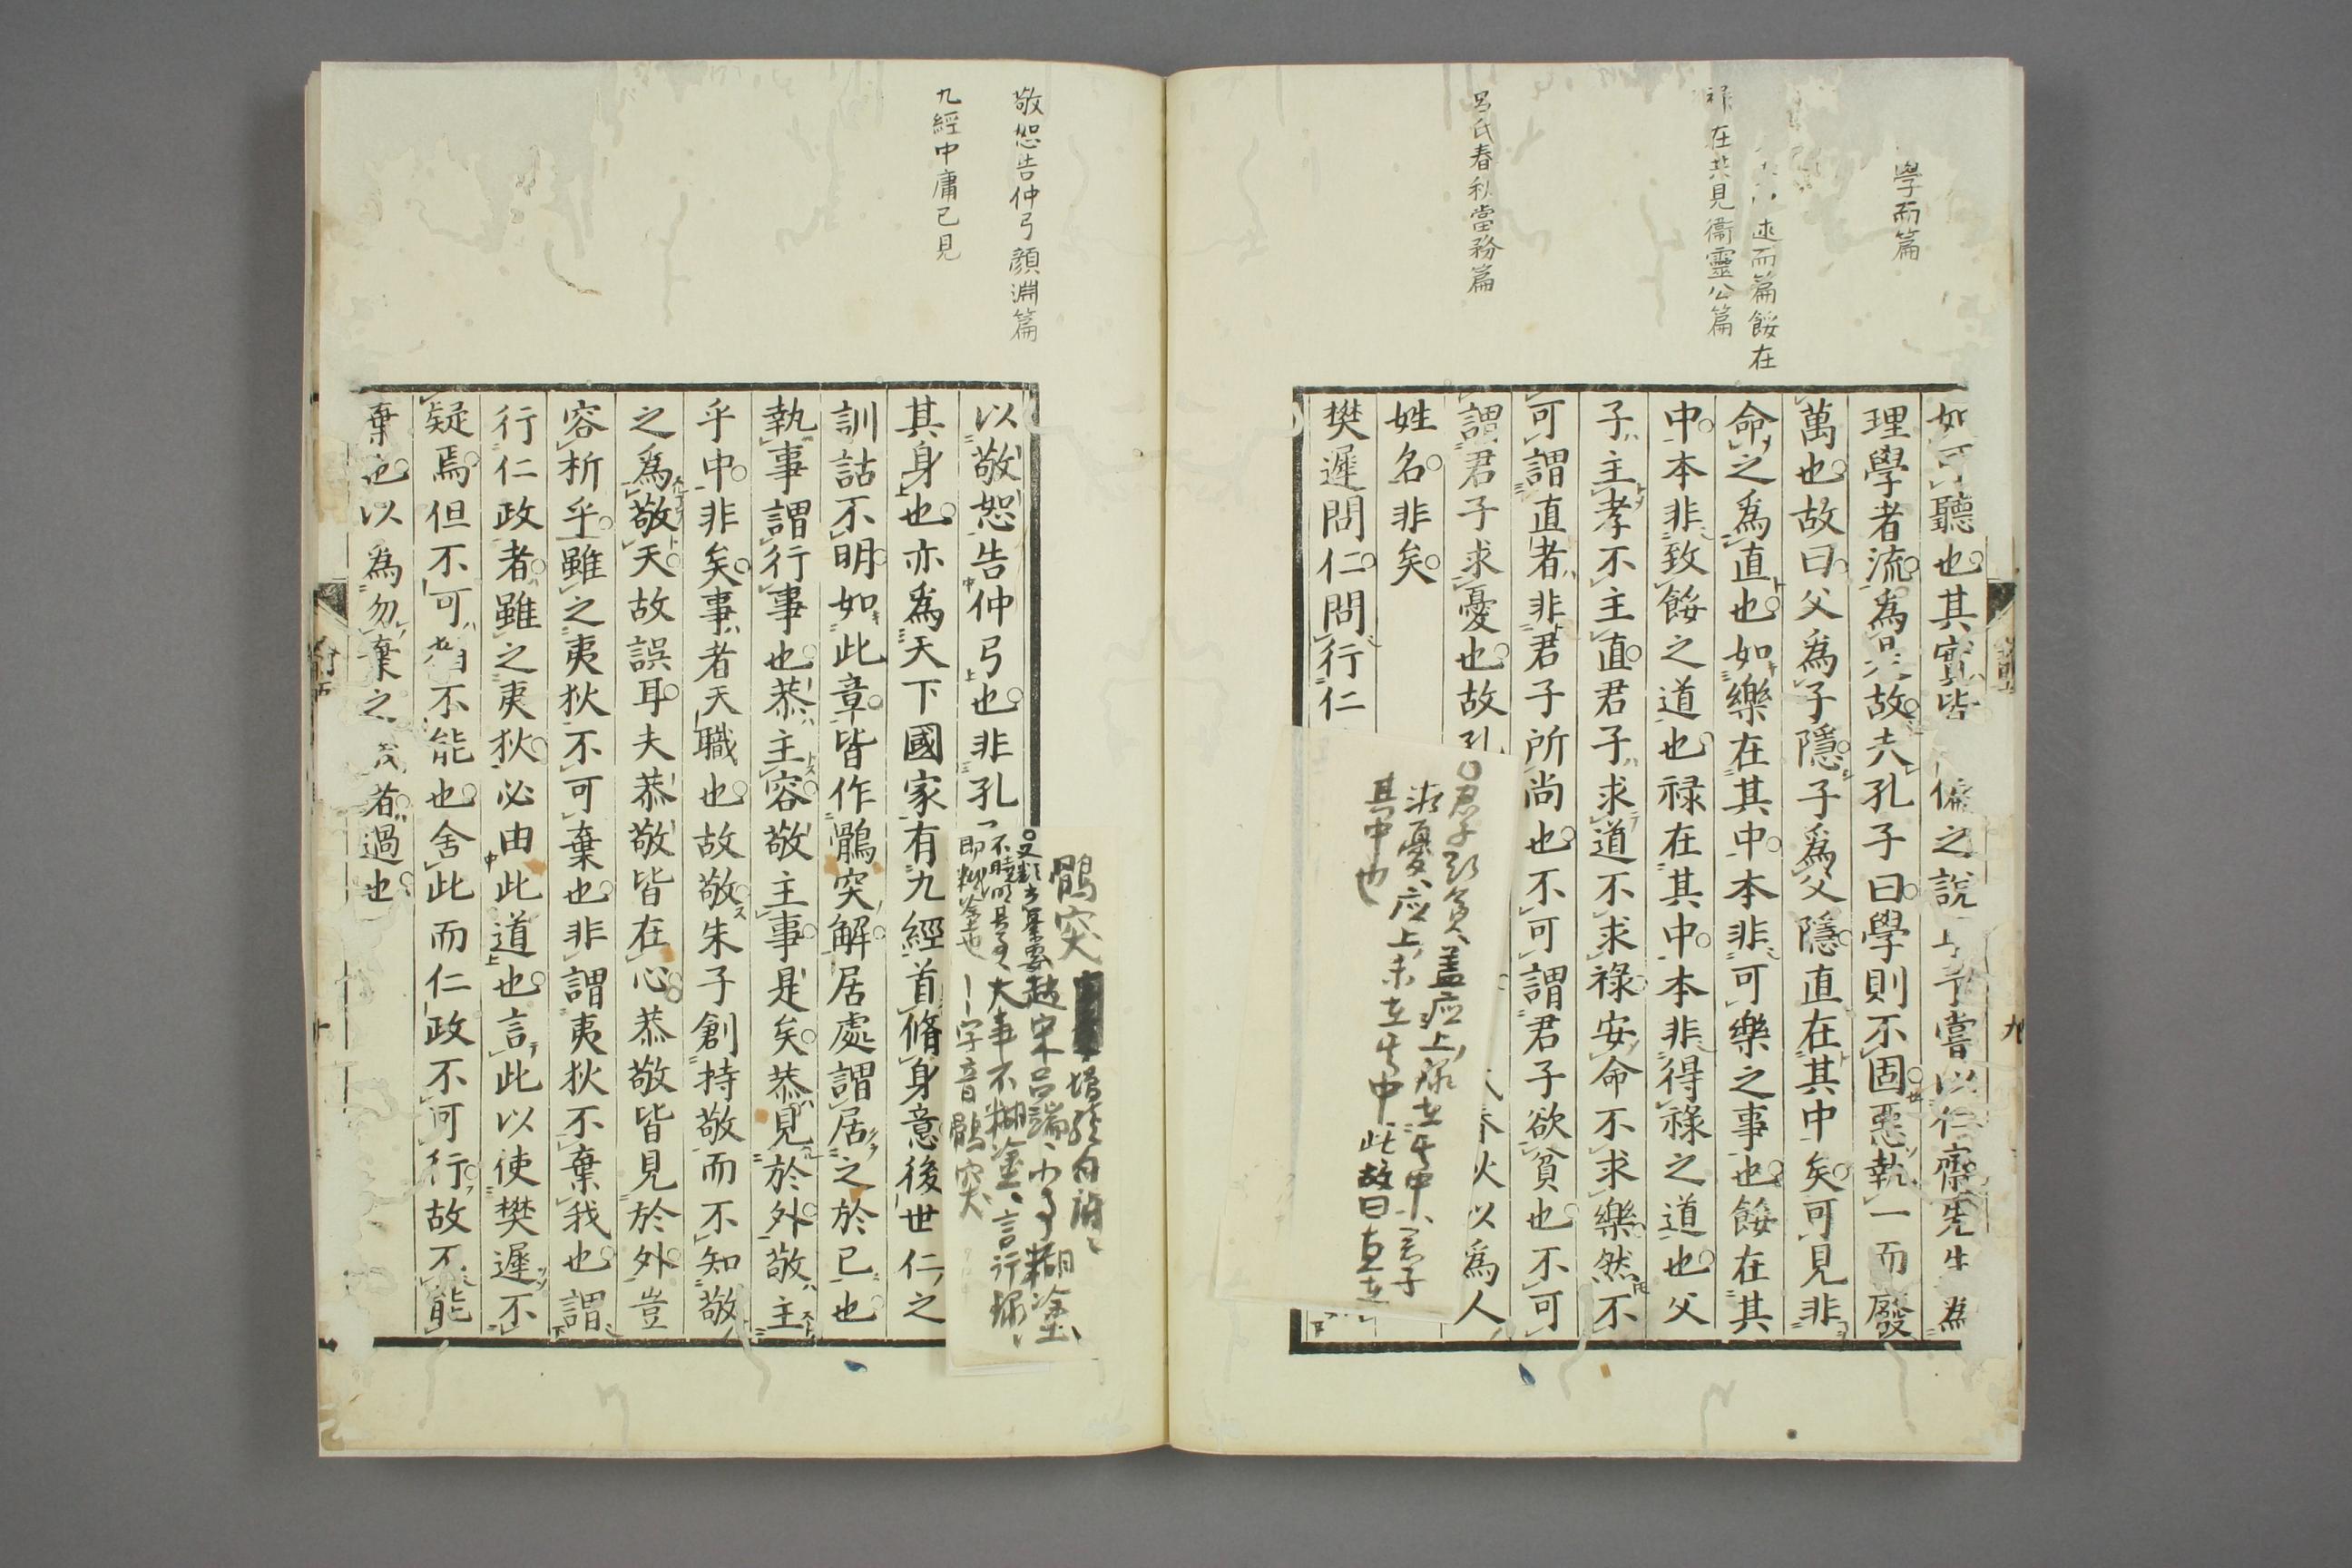 學而篇
述而篇餒在
祿在其見衞靈公篇
呂氏春秋當務篇
如可聽也其實皆偏之說予嘗以仁齋先生爲
理學者流爲是故夫孔子曰學則不固惡執一而廢
萬也故曰父爲子隱子爲父隱直在其中矣可見非
命之爲直也如樂在其中本非可樂之事也餒在其
中本非致餒之道也祿在其中本非得祿之道也父
子主孝不主直君子求道不求祿安命不求樂然不
可謂直者非君子所尚也不可謂君子欲貧也不可
謂君子求憂也故孔
春秋以爲人
姓名非矣
樊遲問仁問行仁
其中也
敬恕告仲弓顏淵篇
九經中庸已見
以敬恕告仲弓也非孔
其身也亦爲天下國家有九經首脩身意後世仁之
訓詁不明如此章皆作鶻突解居處謂居之於已也
執事謂行事也恭主容敬主事是矣恭見於外敬主
乎中非矣事者天職也故敬朱子創持敬而不知敬
之爲敬天故誤耳夫恭敬皆在心恭敬皆見於外豈
容析乎雖之夷狄不可棄也非謂夷狄不棄我也謂
行仁政者雖之夷狄必由此道也言此以使樊遲不
疑焉但不可不能也舍此而仁政不可行故不能
棄也以爲勿棄之者過也
鶻突
大事不糊塗言行錄
字音鶻突